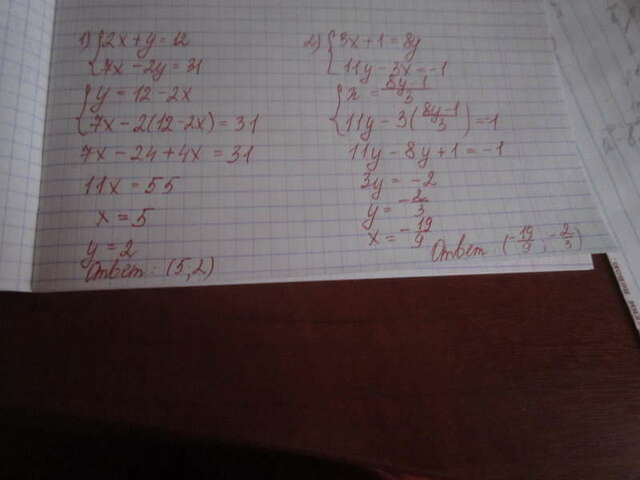 1) {2x+y=12
{7x-2y=31
{y=12-2x
{7x-2(12-2x)=31
7x-24+4x=31
11x=55
x=5
y=2
Ответ: (5,2)
2) {3x+1=8y
{11y-3x=-1
{x=\frac{8y-1}{3}
{11y-3(\frac{8y-1}{3})=-1
11y-8y+1=-1
3y=-2
y=-\frac{2}{3}
x=-\frac{19}{9}
Ответ (-\frac{19}{9}, -\frac{2}{3})